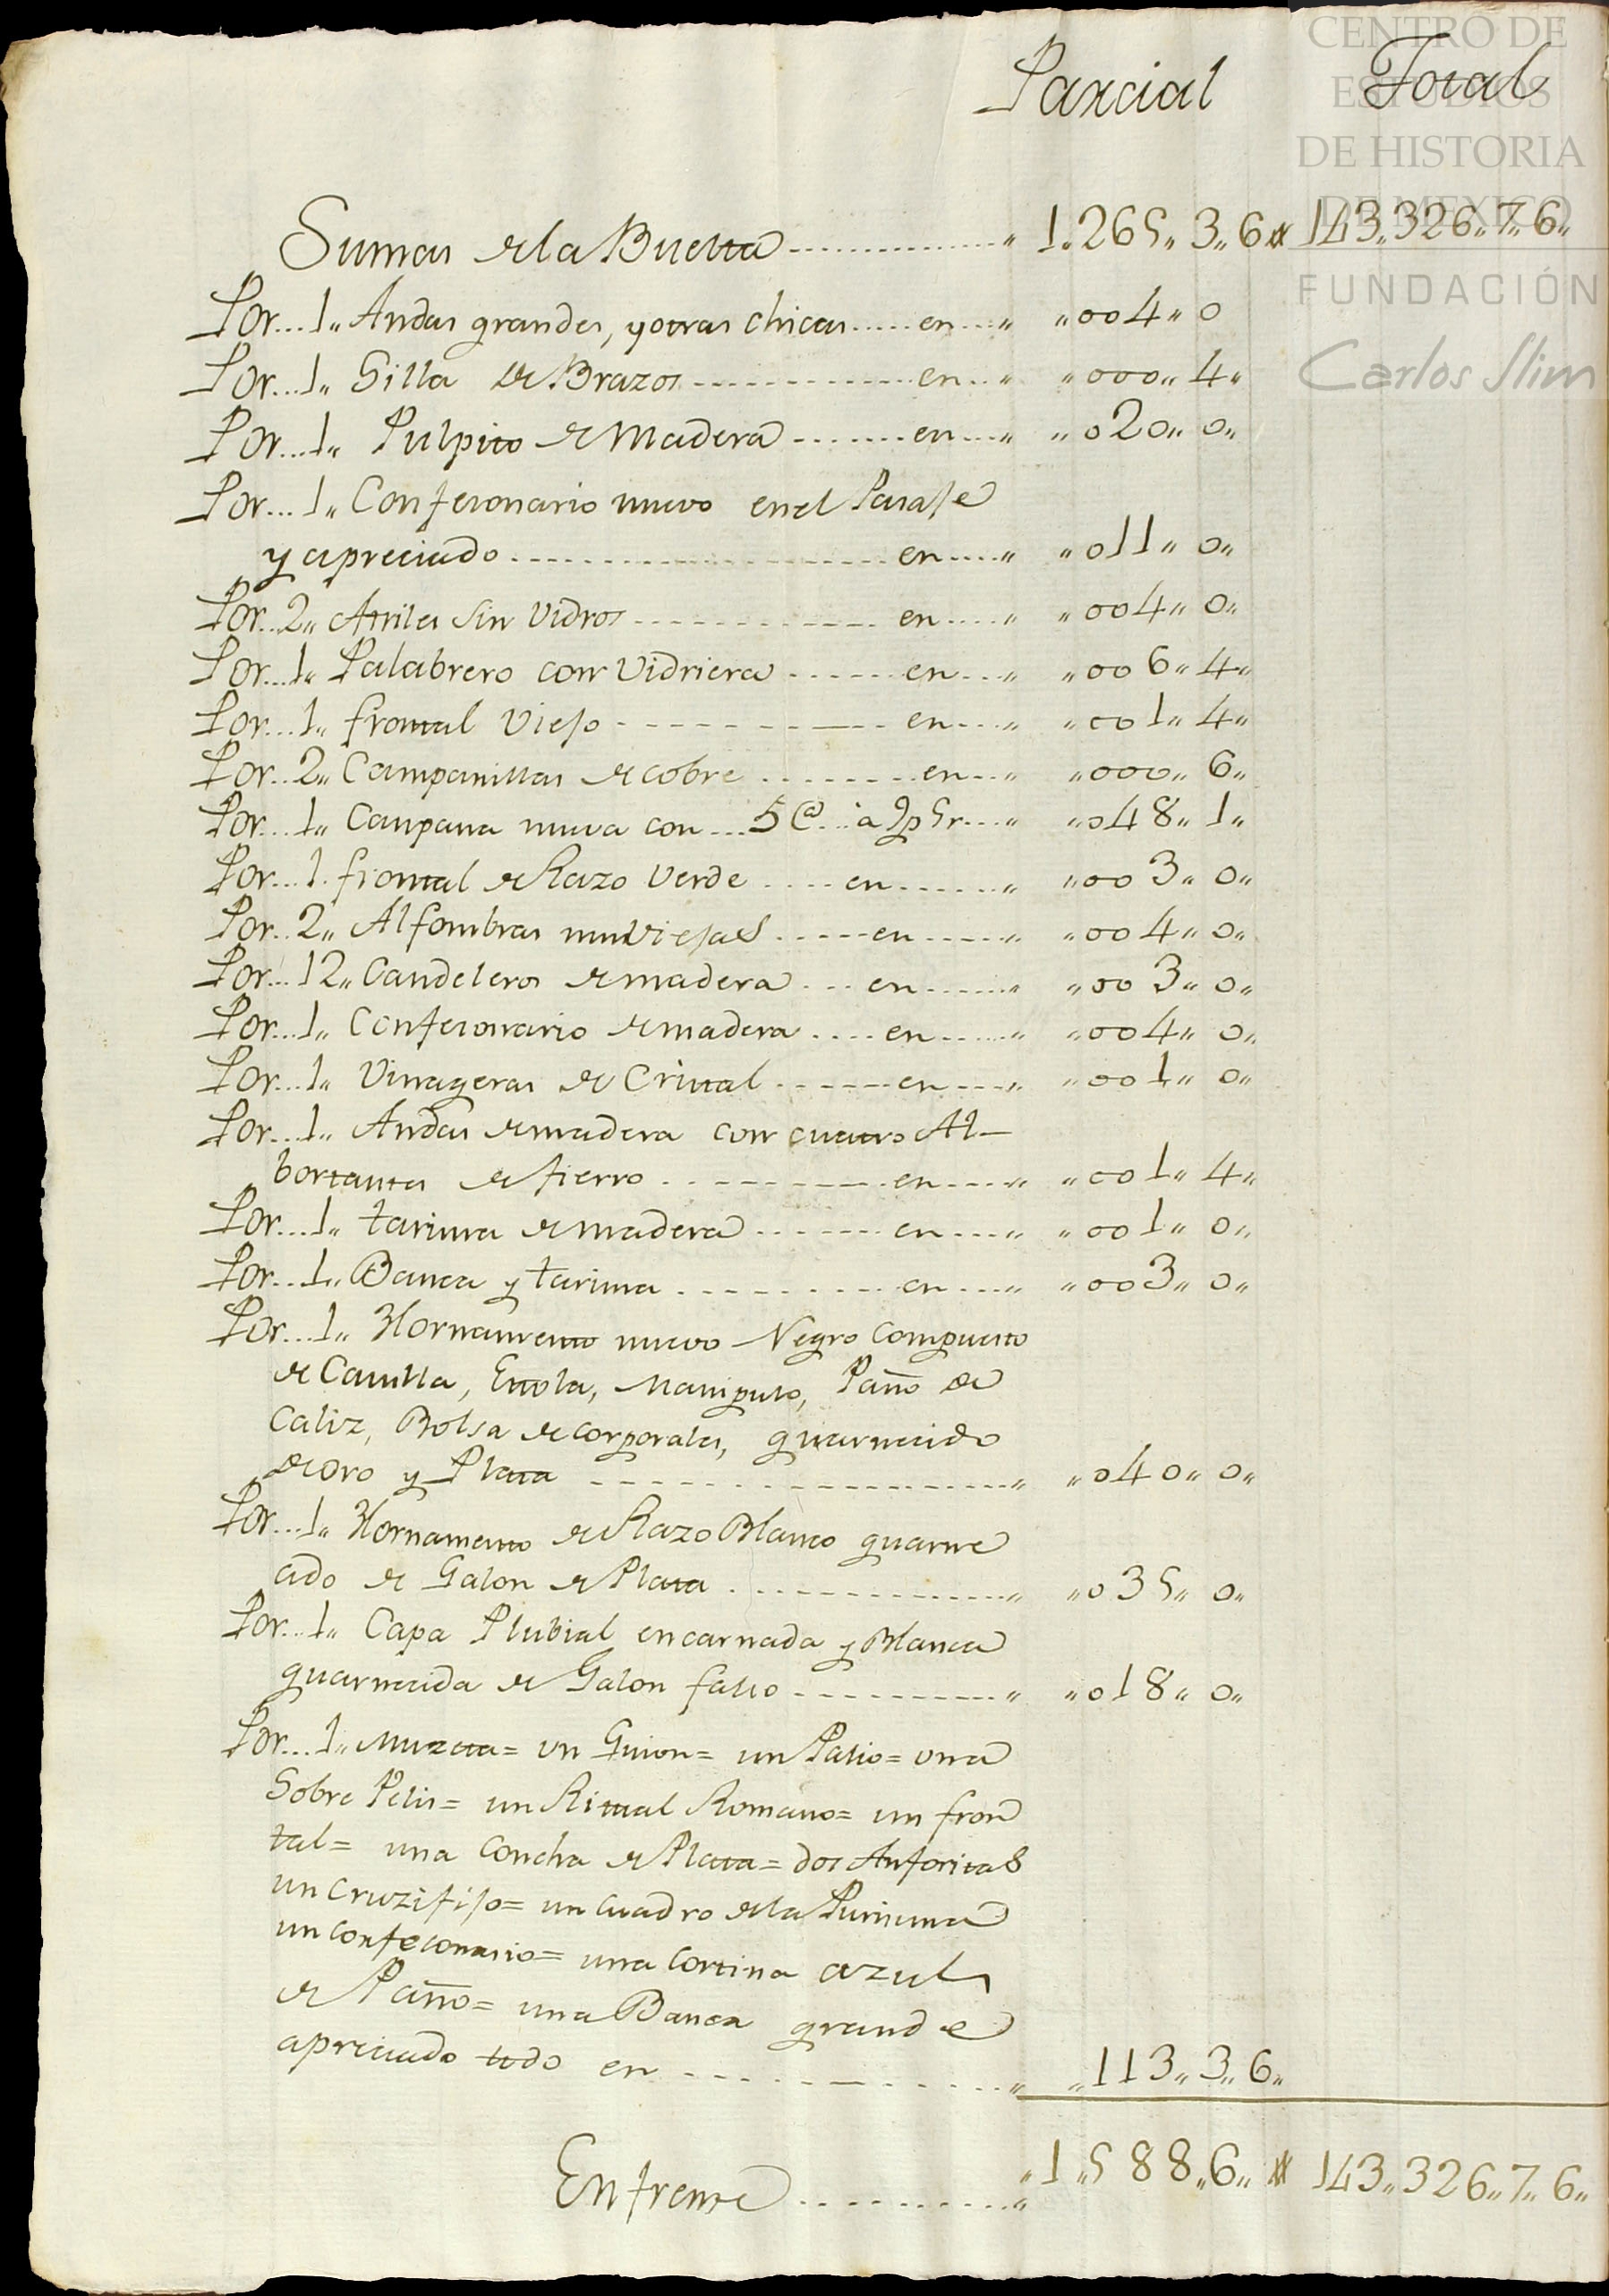 CENTRO DE
ESTUDIOS
DE HISTORIA
DE MEXICO
FUNDACIÓN
Carlos Slim
Parcial Total
Sumas de la Buelta .............. " 1.265,, 3,, 6,, 143,, 326,, 7,, 6,,
Por... 1,, Andas grandes, y otras chicas ..... en ... " ,, 004,, 0
Por... 1,, Silla de Brazos ............. en .. " ,, 000,, 4,,
Por... 1,, Pulpito de Madera ....... en .... " ,, 020,, 0,,
Por... 1,, Confesonario nuevo en el Paraje
y apreciado ..................... en .... " ,, 011,, 0,,
Por.. 2,, Atriles Sin Vidros ............. en .... " ,, 004,, 0,,
Por... 1,, Palabrero con Vidriera ....... en ... " ,, 006,, 4,,
Por... 1,, frontal Viejo ............. en .... " ,, 001,, 4,,
Por.. 2,, Campanillas de cobre ........ en ... " ,, 000,, 6,,
Por... 1,, Canpana nueva con ... 5 @ ... à 9p 5r .... " ,, 048,, 1,,
Por... 1. frontal de Razo Verde .... en ....... " ,, 003,, 0,,
Por.. 2,, Alfombras mui Viejas ...... en ...... " ,, 004,, 0,,
Por... 12,, Candeleros de madera .... en ....... " ,, 003,, 0,,
Por... 1,, Confesonario de madera .... en ...... " ,, 004,, 0,,
Por... 1,, Vinageras de Cristal ....... en .... " ,, 001,, 0,,
Por... 1,, Andas de madera con cuatro Al-
bortantes de fierro ............. en .... " ,, 001,, 4,,
Por... 1,, tarima de madera ....... en .... " ,, 001,, 0,,
Por... 1,, Banca y tarima ............ en .... " ,, 003,, 0,,
Por... 1,, Hornamento nuevo Negro Compuesto
de Casulla, Estola, Manipulo, Paño de
Caliz, Bolsa de corporales, guarnecido
de oro y Plata ..................... " ,, 040,, 0,,
Por... 1,, Hornamento de Razo Blanco guarne
cido de Galon de Plata ................. " ,, 035,, 0,,
Por... 1,, Capa Plubial encarnada y Blanca
guarnecida de Galon falso ............ " ,, 018,, 0,,
Por... 1,, Muzeta= un Guion= un Palio= una
Sobre Pelis= un Ritual Romano= un fron
tal= una Concha de Plata= dos Anforitas
un Cruzifijo= un Cuadro de la Purisima
un confesonario= una Cortina azul
de Paño= una Banca grande
apreciado todo en ............... " ,, 113,, 3,, 6,,
Enfrente .......... " ,, 1,, 588,, 6,, 143,, 326,, 7,, 6,,